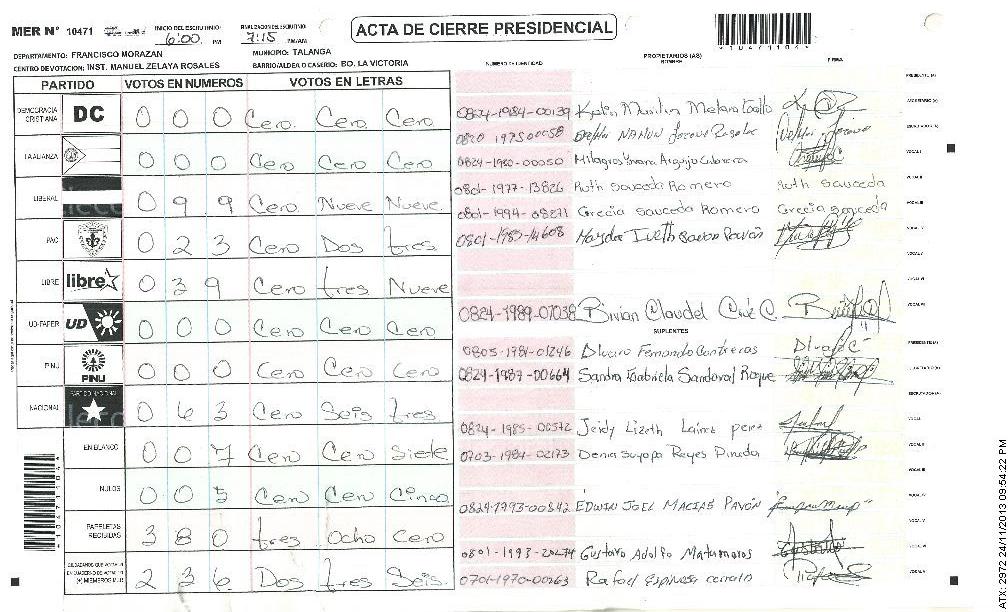 MER N° 10471 INICIO DEL ESCRUTINIO: 6:00 PM FINALIZACION DEL ESCRUTINIO: 7:15 PM/AM
ACTA DE CIERRE PRESIDENCIAL
10471104
DEPARTAMENTO: FRANCISCO MORAZAN MUNICIPIO: TALANGA
CENTRO DE VOTACION: INST. MANUEL ZELAYA ROSALES BARRIO/ALDEA O CASERIO: BO. LA VICTORIA
PARTIDO VOTOS EN NUMEROS VOTOS EN LETRAS
DEMOCRACIA CRISTIANA DC 0 0 0 Cero Cero Cero
LA ALIANZA 0 0 0 Cero Cero Cero
LIBERAL 0 9 9 Cero Nueve Nueve
PAC 0 2 3 Cero Dos tres
LIBRE libre 0 3 9 Cero tres Nueve
UD-FAPER UD 0 0 0 Cero Cero Cero
PINU PINU 0 0 0 Cero Cero Cero
NACIONAL 0 6 3 Cero Seis tres
EN BLANCO 0 0 7 Cero Cero Siete
NULOS 0 0 5 Cero Cero Cinco
PAPELETAS RECIBIDAS 3 8 0 tres Ocho Cero
2 3 6 Dos tres Seis
NUMERO DE IDENTIDAD PROPIETARIOS (AS) NOMBRE FIRMA
PRESIDENTE (A)
SECRETARIO (A)
0824-1984-00139
ESCRUTADOR (A)
0820 1975 00058
VOCAL I
0824-1980-00050 Milagros
VOCAL II
0801-1977-13826 Ruth Sauceda Romero Ruth Sauceda
VOCAL III
0801-1994-08271 Grecia Sauceda Romero Grecia Sauceda
VOCAL IV
0801-1985-14608
VOCAL V
VOCAL VI
VOCAL VII
0824-1989-01038 Bivian Claudel
SUPLENTES
PRESIDENTE (A)
0805-1981-01246 Alvaro Fernando Contreras
SECRETARIO (A)
0824-1987-00664 Sandra Gabriela Sandoval Roque
ESCRUTADOR (A)
VOCAL I
0824-1985-00572 Jeidy Lizeth Lainez perez
VOCAL II
0703-1984-02173 Denia Suyapa Reyes Pineda
VOCAL III
VOCAL IV
0824-1993-00842 EDWIN JOEL MACIAS PAVÓN
VOCAL V
VOCAL VI
0801-1993-20274 Gustavo Adolfo Matamoros Gustavo
VOCAL VII
0701-1970-00063 Rafael Espinoza
ATX: 2972 24/11/2013 09:54:22 PM